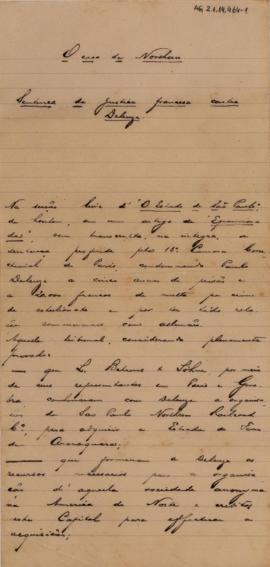 AG 2.1.19.464-1
O caso da Northern
Sentença da justiça franceza contra
Deleuze
Na secção livre d'"O Estado de São Paulo",
de hontem, em um artigo de
vem transcripta na integra, a
sentença proferida pela 13ª Camara
de Paris, condemnando Paulo
Deleuze a cinco annos de prisão e
a 2.000 francos de multa por crime
de estelionato e por ter tido rela
commerciaes com allemães.
Aquelle tribunal, considerando plenamente
provado:
— que L. Behrens & Söhne, por meio
de seus representantes em Paris e Gene
bra combinaram com Deleuze a organisa
de São Paulo Northern Railroad
Cº, para adquirir a Estrada de Ferro
de Araraquara;
— que forneceram a Deleuze os
recursos necessarios para a organisa
ção d'aquella sociedade anonyma
na America do Norte e
este Capital para effectuar a
acquisição;